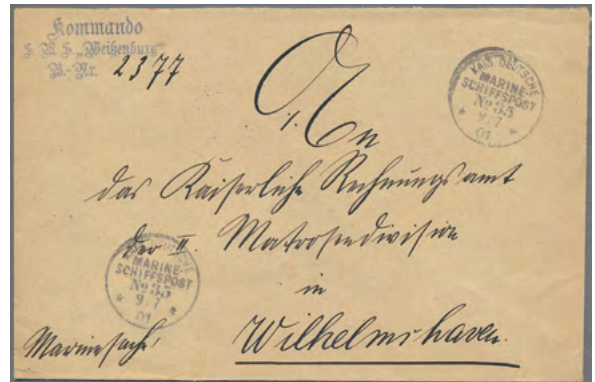 Kommando
S. M. S. „Weißenburg"
B.-Nr. 2377
KAIS. DEUTSCHE
MARINE-
SCHIFFSPOST
No 35
9/7
01
An
das Kaiserliche Rechnungsamt
der II. Matrosendivision
in
Wilhelmshaven.
KAIS. DEUTSCHE
MARINE-
SCHIFFSPOST
No 35
9/7
01
Marinesache!